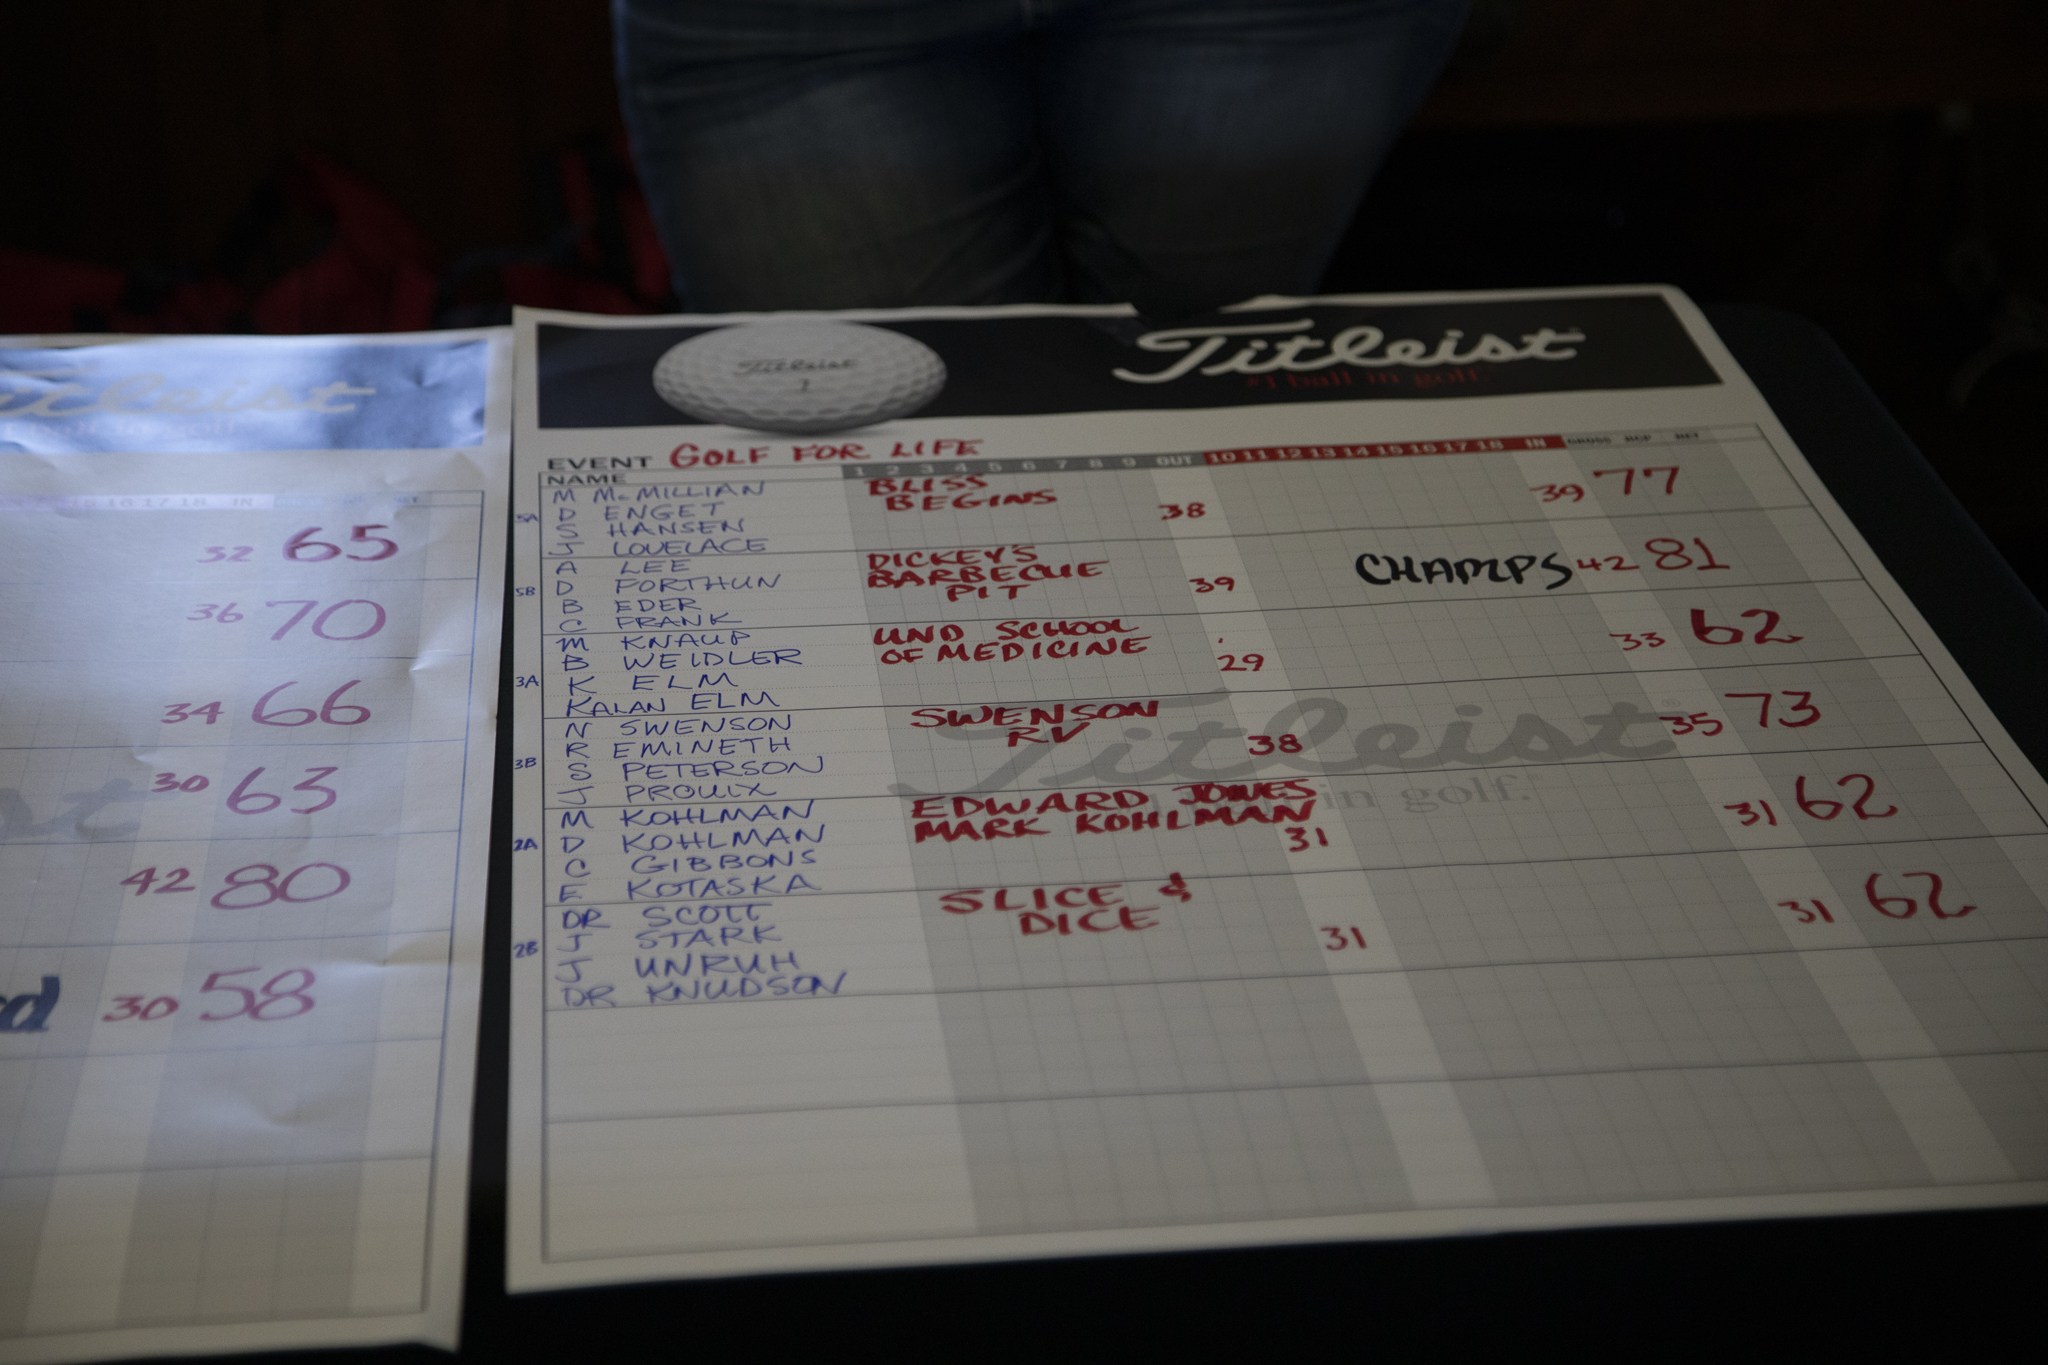 Titleist
Titleist
#1 ball in golf.
EVENT GOLF FOR LIFE
NAME 1 2 3 4 5 6 7 8 9 OUT 10 11 12 13 14 15 16 17 18 IN GROSS HCP NET
5A
M McMILLIAN
D ENGET
S HANSEN
J LOVELACE
BLISS
BEGINS
38
39 77
5B
A LEE
D FORTHUN
B EDER
C FRANK
DICKEY'S
BARBECUE
PIT
39
CHAMPS 42 81
3A
M KNAUP
B WEIDLER
K ELM
KALAN ELM
UND SCHOOL
OF MEDICINE
29
33 62
3B
N SWENSON
R EMINETH
S PETERSON
J PROULX
SWENSON
RV
38
35 73
2A
M KOHLMAN
D KOHLMAN
C GIBBONS
E KOTASKA
EDWARD JONES
MARK KOHLMAN
31
31 62
2B
DR SCOTT
J STARK
J UNRUH
DR KNUDSON
SLICE &
DICE
31
31 62
Titleist
in golf.
itleist
16 17 18 IN
32 65
36 70
34 66
30 63
42 80
30 58